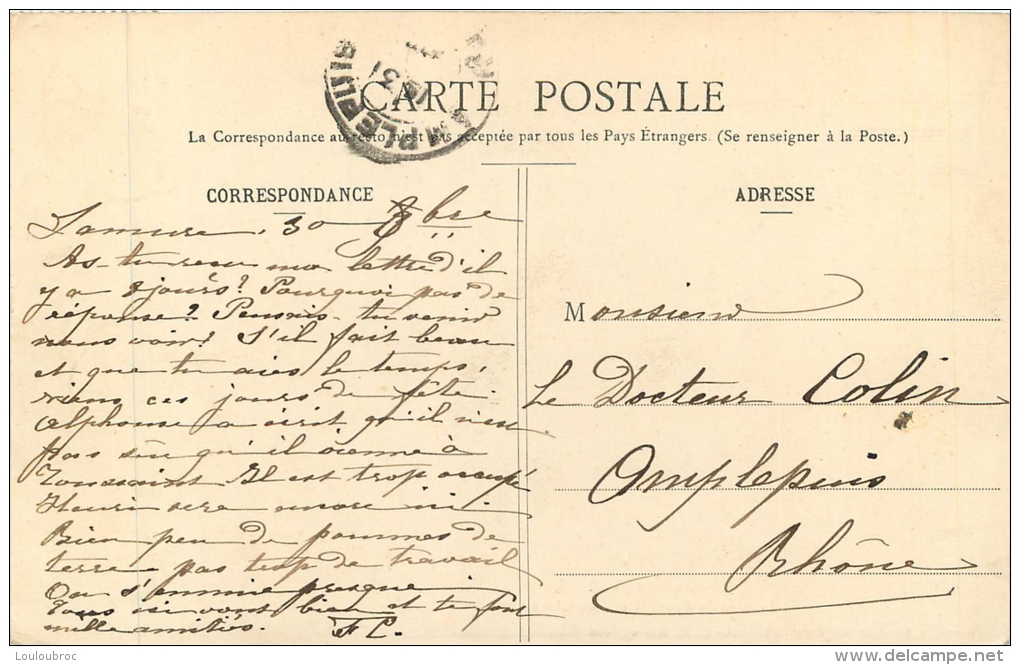 CARTE POSTALE
AMPLEPUIS
31
La Correspondance au recto n'est pas acceptée par tous les Pays Étrangers. (Se renseigner à la Poste.)
CORRESPONDANCE
Lamure, 30 8bre
As-tu reçu ma lettre d'il
y a 8 jours? Pourquoi pas de
réponse? Pensais-tu venir
nous voir? S'il fait beau
et que tu aies le temps,
viens ces jours de fête.
Alphonse a écrit qu'il n'est
pas sûr qu'il vienne à
Toussaint Il est trop occupé
Henri sera
Bien peu de pommes de
terre pas trop de travail
On s'ennuie presque
Tous ici vont bien et te font
mille amitiés. F C.
ADRESSE
Monsieur
le Docteur Colin
Amplepuis
Rhône
Louloubroc
www.delcampe.net